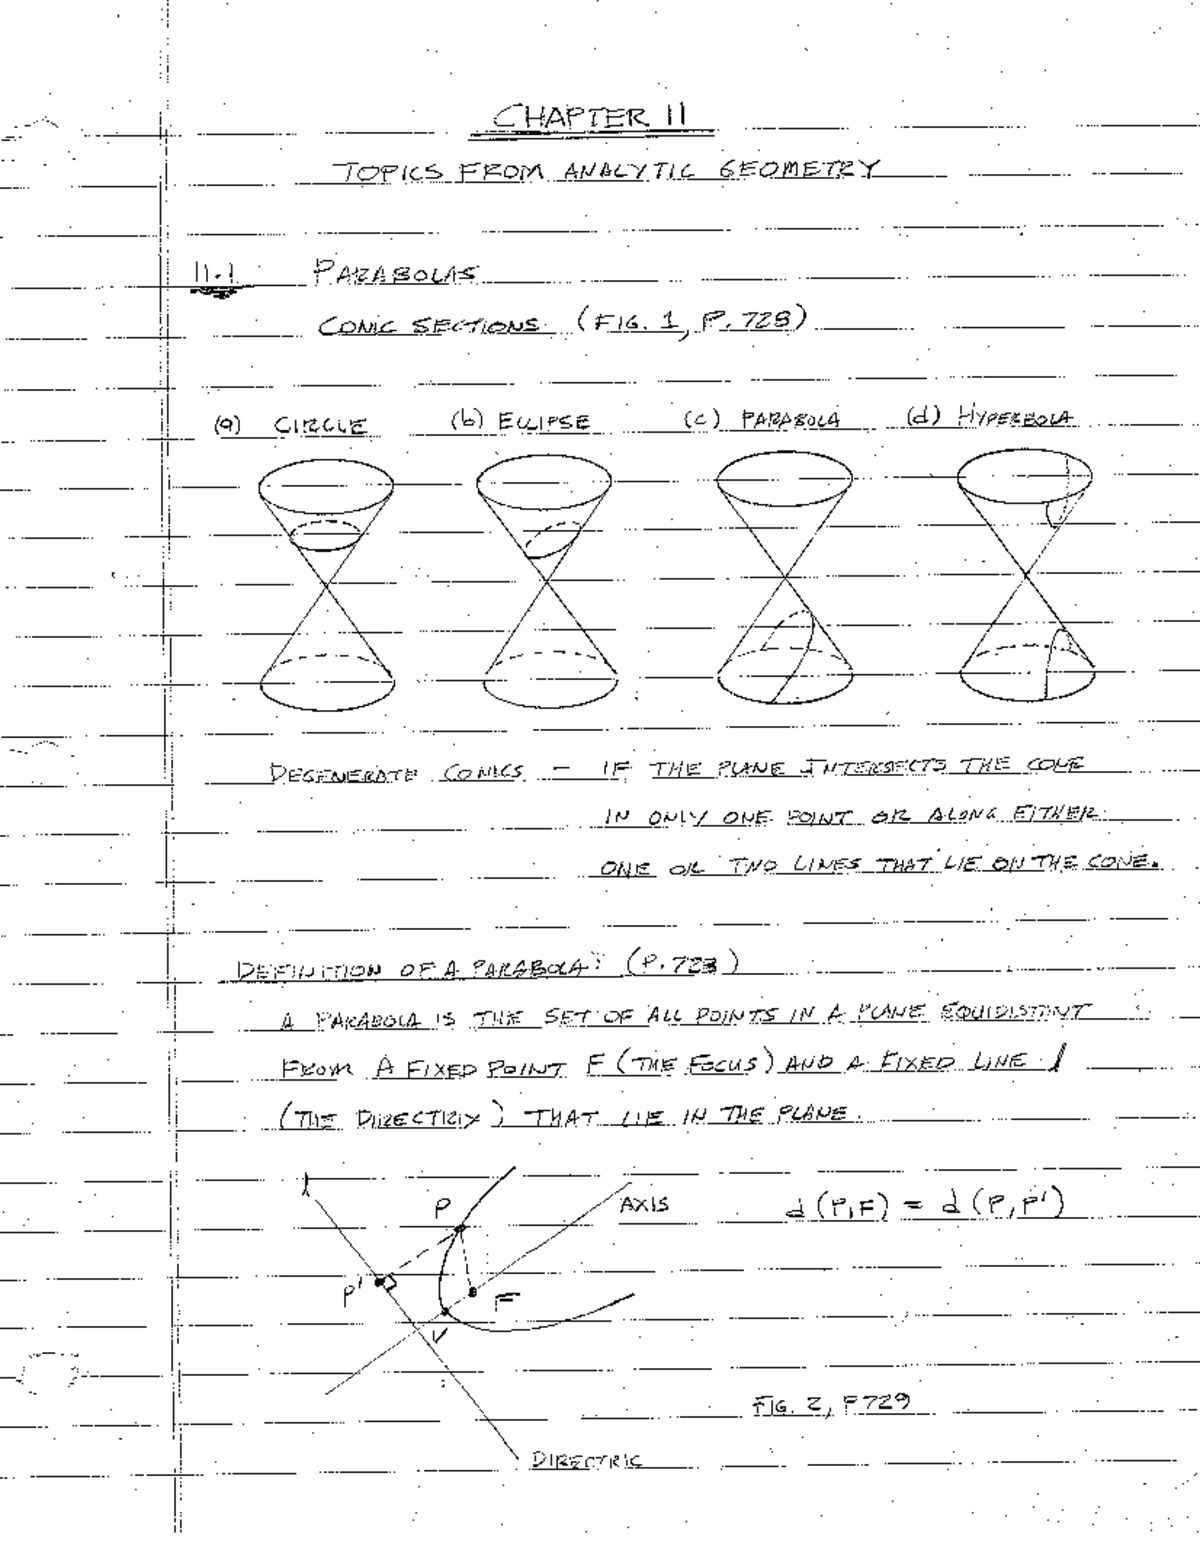 CHAPTER 11
TOPICS FROM ANALYTIC GEOMETRY
11.1 PARABOLAS
CONIC SECTIONS (FIG. 1, P. 728)
(a) CIRCLE (b) ELLIPSE (c) PARABOLA (d) HYPERBOLA
DEGENERATE CONICS — IF THE PLANE INTERSECTS THE CONE
IN ONLY ONE POINT OR ALONG EITHER
ONE OR TWO LINES THAT LIE ON THE CONE.
DEFINITION OF A PARABOLA: (P. 728)
A PARABOLA IS THE SET OF ALL POINTS IN A PLANE EQUIDISTANT
FROM A FIXED POINT F (THE FOCUS) AND A FIXED LINE l
(THE DIRECTRIX) THAT LIE IN THE PLANE.
l
P
AXIS
d(P,F) = d(P,P')
P'
F
V
FIG. 2, P729
DIRECTRIC